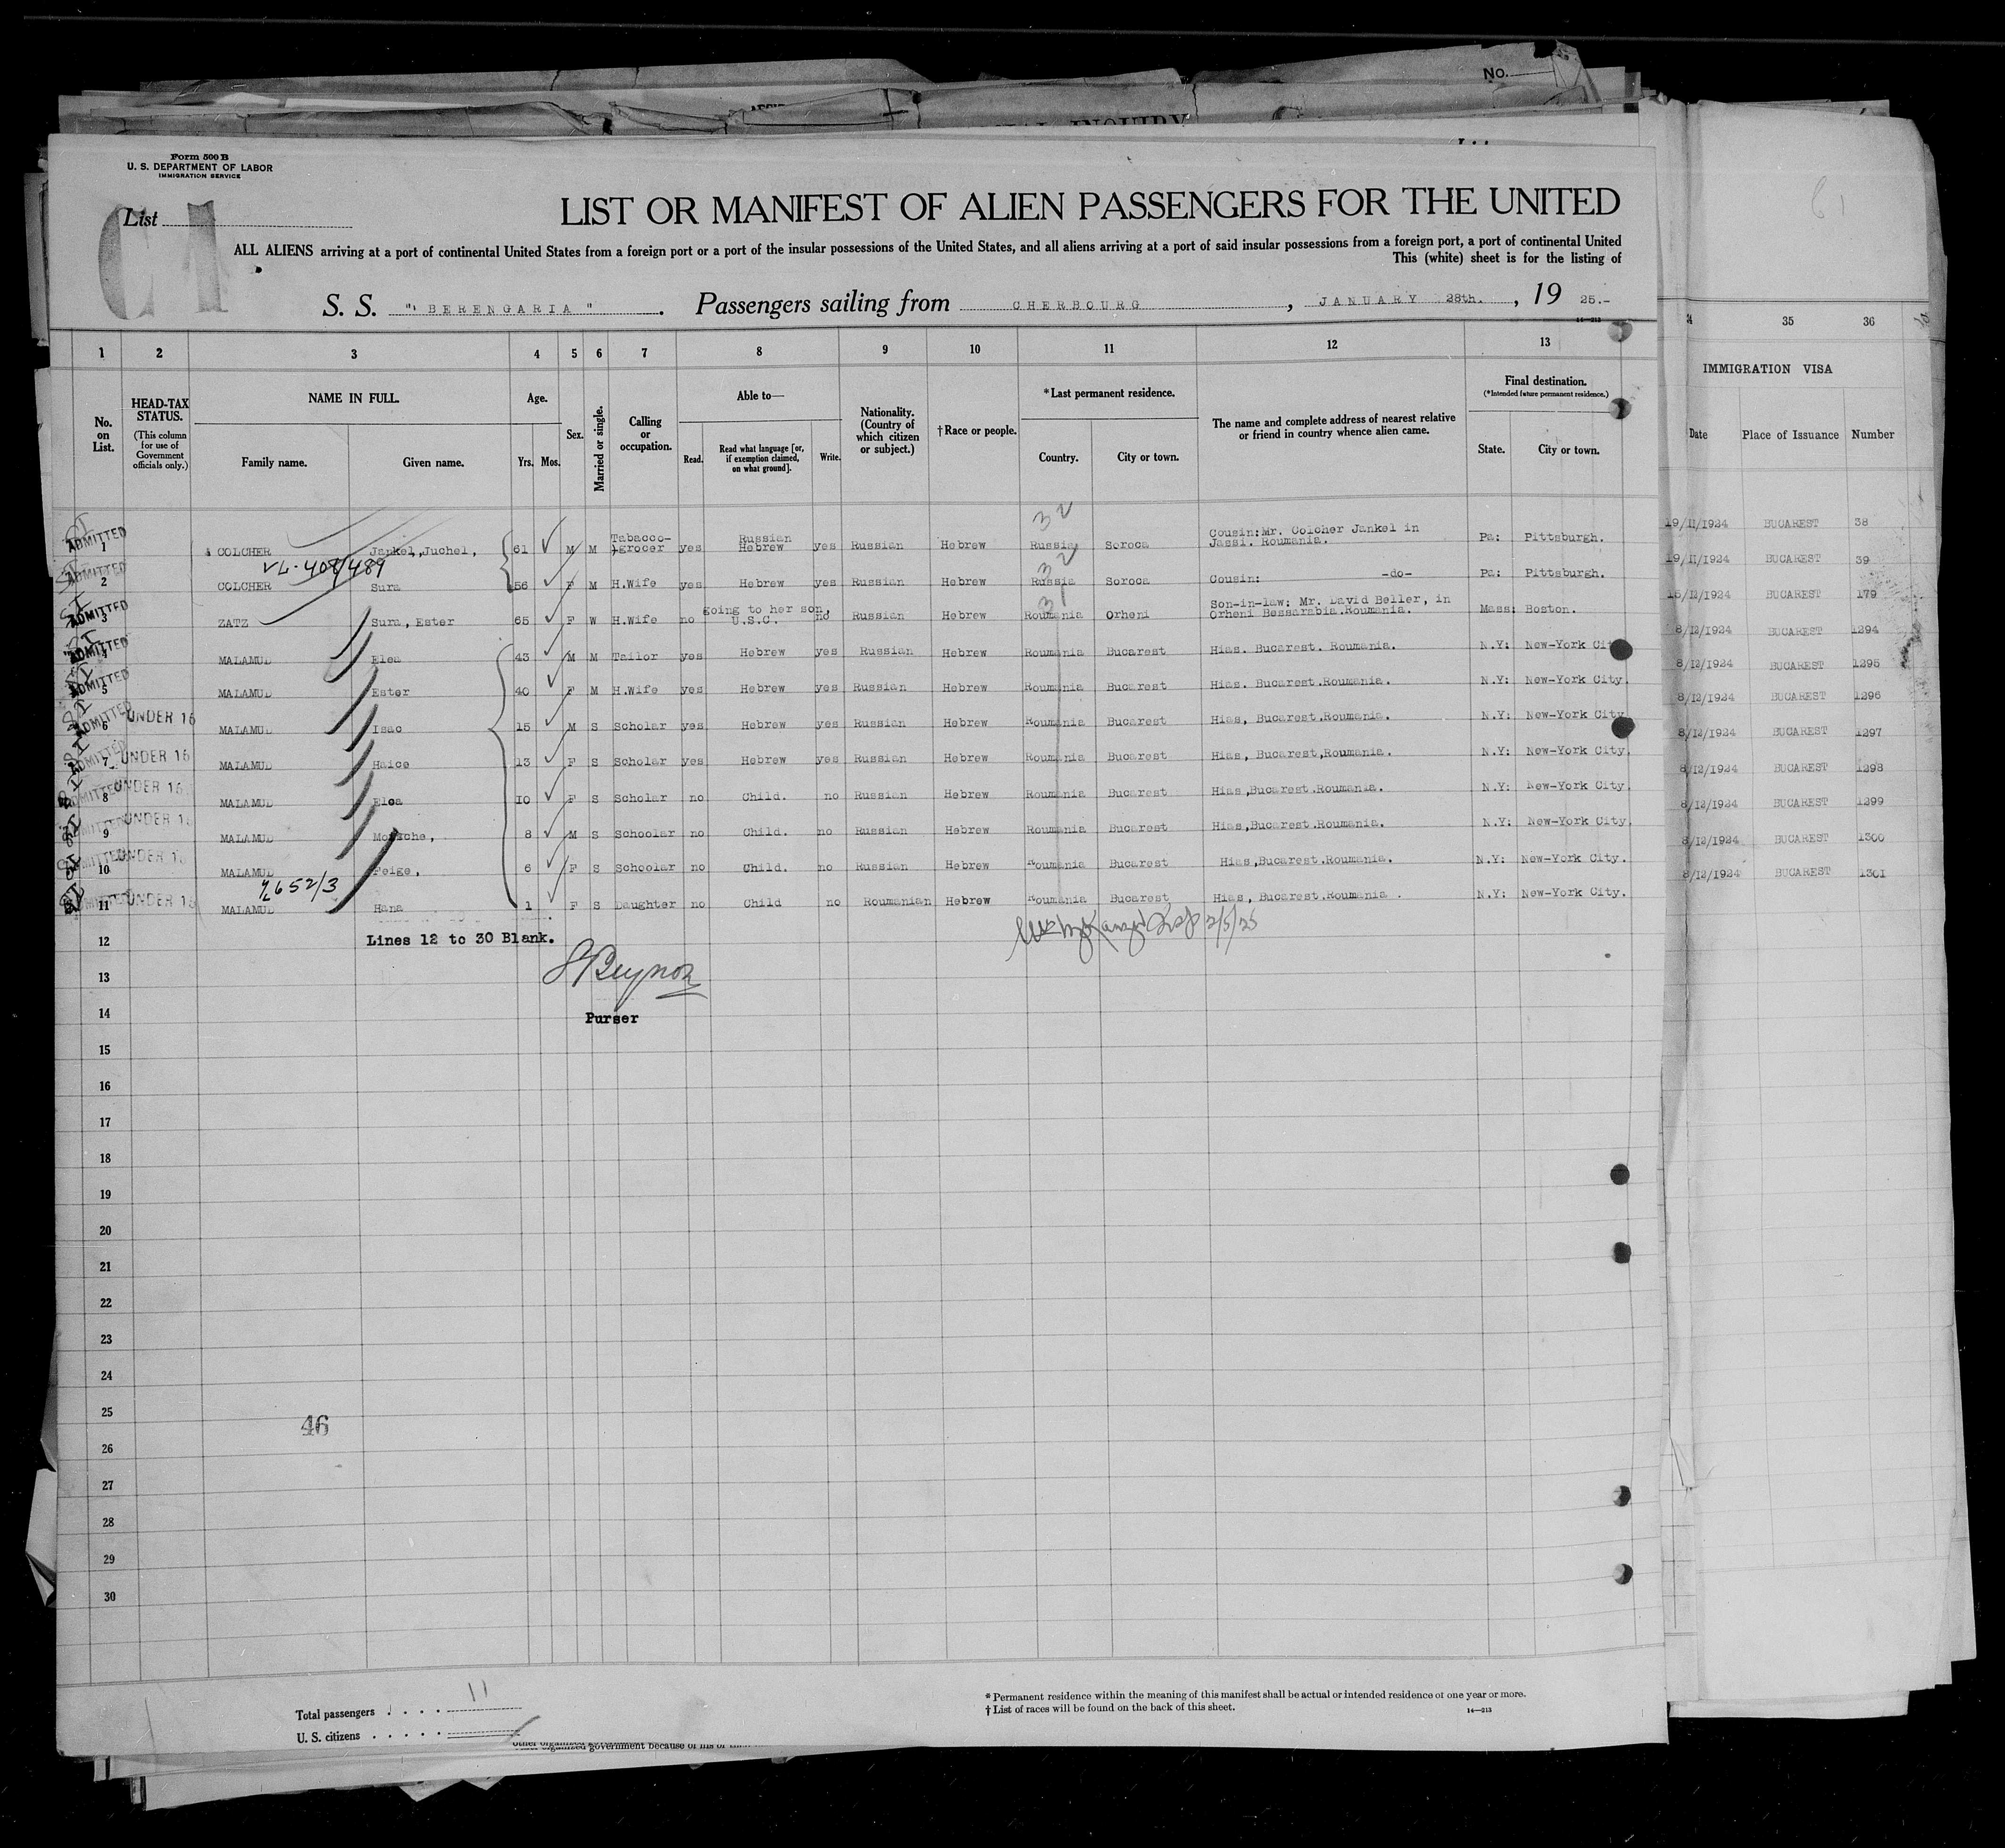 No.
IAL INQUIRY
Form 500 B
U. S. DEPARTMENT OF LABOR
IMMIGRATION SERVICE
List
LIST OR MANIFEST OF ALIEN PASSENGERS FOR THE UNITED
ALL ALIENS arriving at a port of continental United States from a foreign port or a port of the insular possessions of the United States, and all aliens arriving at a port of said insular possessions from a foreign port, a port of continental United
This (white) sheet is for the listing of
S. S. " BERENGARIA " . Passengers sailing from CHERBOURG , JANUARY 28th. , 19 25.-
14—213
61
1 2 3 4 5 6 7 8 9 10 11 12 13 35 36
No. on List. HEAD-TAX STATUS. (This column for use of Government officials only.) NAME IN FULL. Age. Sex. Married or single. Calling or occupation. Able to— Nationality. (Country of which citizen or subject.) †Race or people. *Last permanent residence. The name and complete address of nearest relative or friend in country whence alien came. Final destination. (*Intended future permanent residence.) IMMIGRATION VISA
Family name. Given name. Yrs. Mos. Read. Read what language [or, if exemption claimed, on what ground]. Write. Country. City or town. State. City or town. Date Place of Issuance Number
ADMITTED 1 COLCHER Jankel,Juchel, 61 M M Tabacco-grocer yes Russian Hebrew yes Russian Hebrew Russia 32 Soroca Cousin:Mr. Colcher Jankel in Jassi. Roumania. Pa: Pittsburgh. 19/11/1924 BUCAREST 38
408/489
ADMITTED 2 COLCHER Sura 56 F M H.Wife yes Hebrew yes Russian Hebrew Russia 32 Soroca Cousin: -do- Pa: Pittsburgh. 19/11/1924 BUCAREST 39
ADMITTED 3 ZATZ Sura, Ester 65 F W H.Wife no going to her son, U.S.C. no Russian Hebrew Roumania 31 Orheni Son-in-law; Mr. David Beller, in Orheni Bessarabia.Roumania. Mass: Boston. 15/12/1924 BUCAREST 179
ADMITTED 4 MALAMUD Elea 43 M M Tailor yes Hebrew yes Russian Hebrew Roumania Bucarest Hias. Bucarest. Roumania. N.Y: New-York City 8/12/1924 BUCAREST 1294
ADMITTED 5 MALAMUD Ester 40 F M H.Wife yes Hebrew yes Russian Hebrew Roumania Bucarest Hias. Bucarest.Roumania. N.Y: New-York City. 8/12/1924 BUCAREST 1295
ADMITTED 6 UNDER 16 MALAMUD Isac 15 M S Scholar yes Hebrew yes Russian Hebrew Roumania Bucarest Hias, Bucarest.Roumania. N.Y: New-York City 8/12/1924 BUCAREST 1296
ADMITTED 7 UNDER 16 MALAMUD Haice 13 F S Scholar yes Hebrew yes Russian Hebrew Roumania Bucarest Hias, Bucarest,Roumania. N.Y: New-York City. 8/12/1924 BUCAREST 1297
ADMITTED 8 UNDER 16 MALAMUD 10 F S Scholar no Child. no Russian Hebrew Roumania Bucarest Hias,Bucarest.Roumania. N.Y: New-York City 8/12/1924 BUCAREST 1298
ADMITTED 9 UNDER 16 MALAMUD 8 M S Schoolar no Child. no Russian Hebrew Roumania Bucarest Hias,Bucarest.Roumania. N.Y: New-York City. 8/12/1924 BUCAREST 1299
ADMITTED 10 UNDER 16 MALAMUD Feige, 6 F S Schoolar no Child. no Russian Hebrew Roumania Bucarest Hias,Bucarest.Roumania. N.Y: New-York City. 8/12/1924 BUCAREST 1300
652/3
ADMITTED 11 UNDER 16 MALAMUD Hana 1 F S Daughter no Child no Roumanian Hebrew Roumania Bucarest Hias, Bucarest.Roumania . N.Y: New-York City. 8/12/1924 BUCAREST 1301
12 Lines 12 to 30 Blank. 2/5/25
13
Purser
14
15
16
17
18
19
20
21
22
23
24
25
46
26
27
28
29
30
Total passengers . . . . 11
U. S. citizens . . . . .
* Permanent residence within the meaning of this manifest shall be actual or intended residence of one year or more.
† List of races will be found on the back of this sheet.
14—213